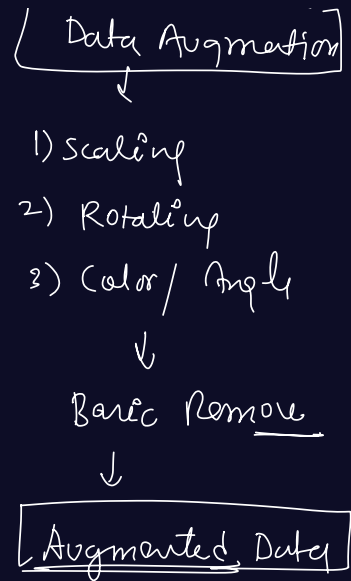 Data Augmentation
1) Scaling
2) Rotating
3) Color / Angle
Basic Remove
Augmented Data